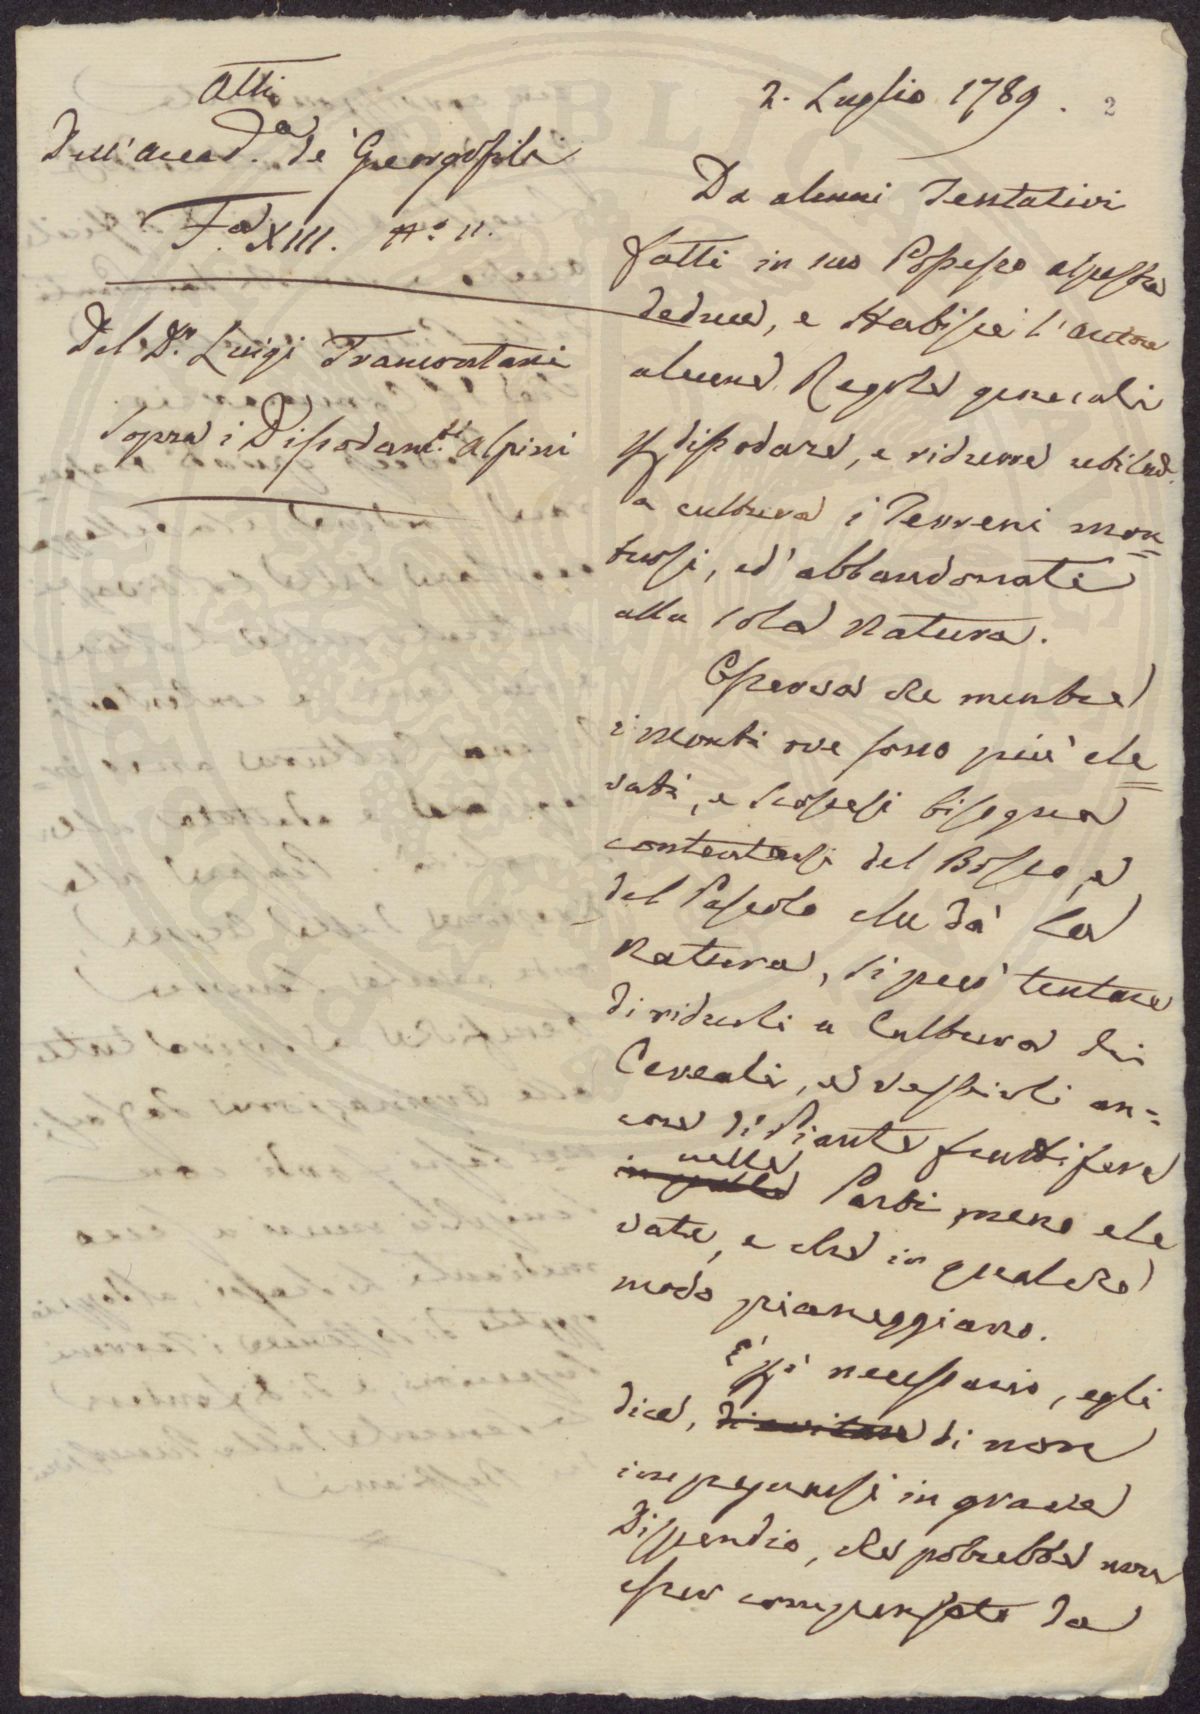 Atti
Dell'Accad.a de' Georgofili
F.a XIII. N.o 11.
Del D.r Luigi Tramontani
Sopra i Dissodam.ti Alpini
2. Luglio 1789. 2
Da alcuni Tentativi
fatti in suo Possesso alpestre
deduce, e stabilisce l'autore
alcune Regole generali
p dissodare, e ridurre
a cultura i Terreni mon=
tuosi, ed' abbandonati
alla sola Natura.
Osserva che mentre
i Monti ove sono più ele=
vati, e scoscesi bisogna
contentarsi del Bosco, e
del Pascolo che dà la
Natura, si può tentare
di ridurli a Cultura di
Cereali, e vestirli an=
core di Piante fruttifere
nelle
Parti meno ele
vate, e che in qualche
modo pianeggiano.
E' necessario, egli
dice, di non
impegnarsi in grave
Dispendio, che potrebbe non
esser compensato da